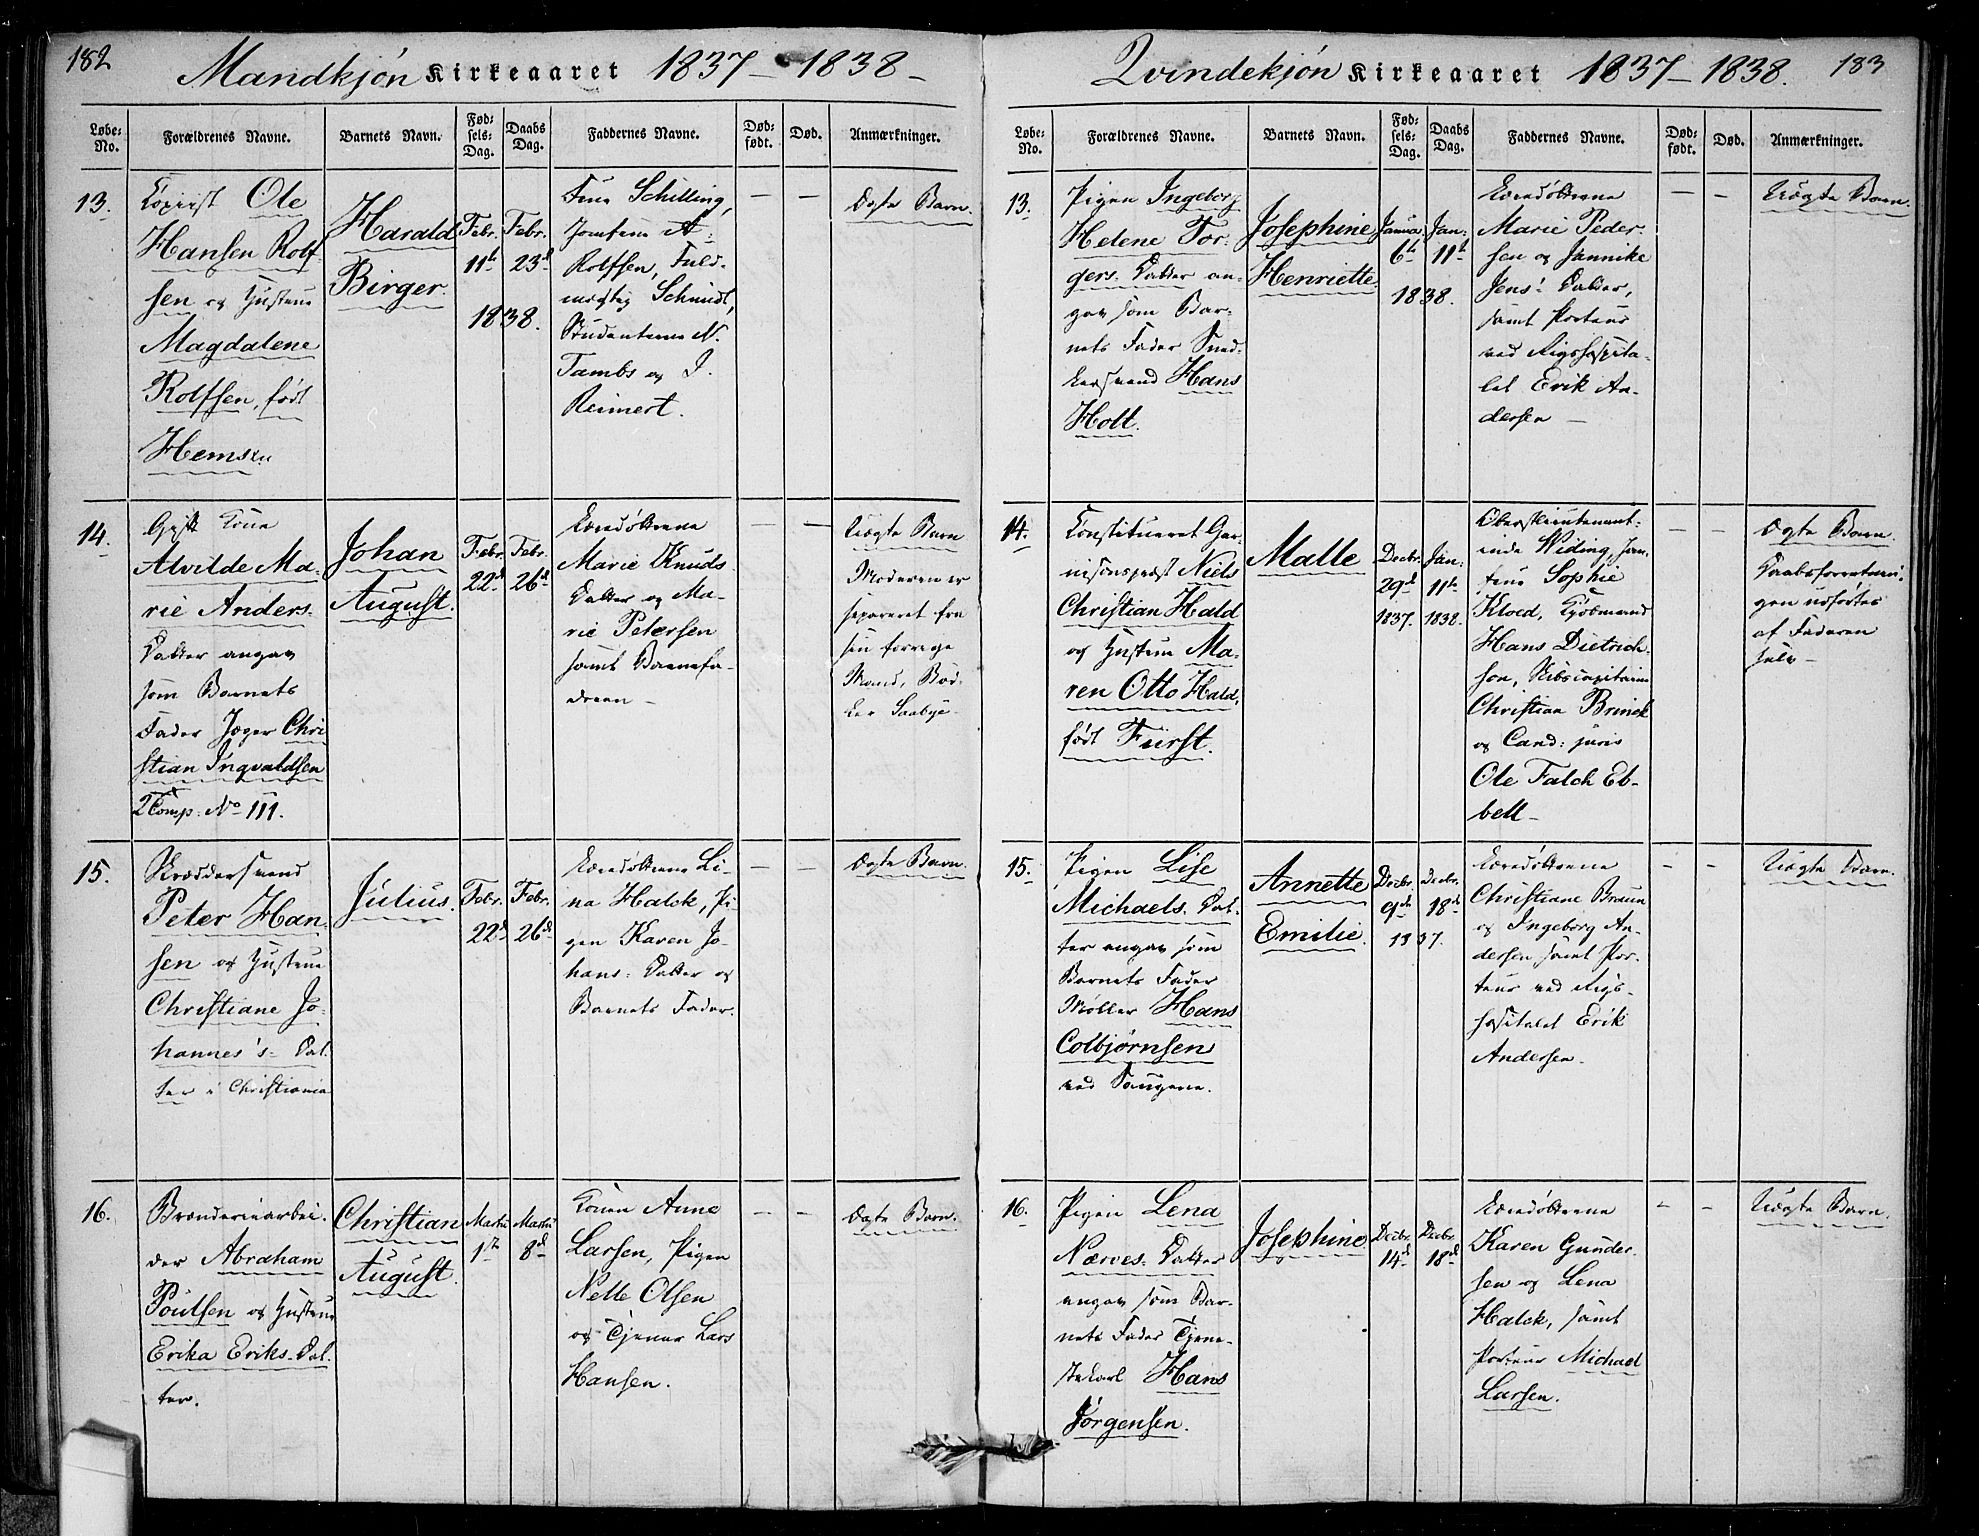 182
Mandkjøn Kirkeaaret 1837 - 1838 -
Løbe-No.
Forældrenes Navne.
Barnets Navn.
Fødsels-Dag.
Daabs Dag.
Faddernes Navne.
Dødfødt.
Død.
Anmærkninger.
13.
Copist Ole
Hansen Rolf
sen og Hustrue
Magdalene
Rolfsen, født
Hemsen
Harald
Birger.
Febr.
11te
Febr.
23d
1838.
Frue Schilling,
Jomfrue A.
Rolfsen, Fuld-
mægtig Schmidt,
Studenterne N.
Tambs og J.
Reimert.
— —
Ægte Barn.
14.
Gift Kone
Alvilde Ma-
rie Anders-
Datter angav
som Barnets
Fader Jæger Chri
stian Ingvaldsen
2 Comp: No 111.
Johan
August.
Febr.
22d
Febr.
26d
Jordmødrene
Marie Knuds
Datter og Ma-
rie Petersen
samt Barnefa-
deren -
— —
Uægte Barn
Moderen er
separeret fra
sin forrige
Mand,
15.
Skrædersvend
Peter Han-
sen og Hustrue
Christiane Jo-
hannes's- Dat-
ter i Christiania
Julius.
Febr.
22d
Febr.
26d
Li-
na Halck, Pi-
gen Karen Jo-
hans- Datter og
Barnets Fader.
— —
Ægte Barn.
16.
Brænderiearbei-
der Abraham
Poulsen og Hustrue
Erika Eriks-Dat-
ter.
Christian
August.
Martii
1te
Martii
8d
Konen Anne
Larsen, Pigen
Nelle Olsen
og Tjener Lars
Hansen.
— —
Ægte Barn.
Qvindekjøn Kirkeaaret 1837 - 1838. 183
Løbe-No.
Forældrenes Navne.
Barnets Navn.
Fødsels-Dag.
Daabs Dag.
Faddernes Navne.
Dødfødt.
Død.
Anmærkninger.
13.
Pigen Ingeborg
Helene Tor-
gers- Datter an-
gav som Bar-
nets Fader Sned-
kersvend Hans
Holt.
Josephine
Henriette.
Janua.
6te
Jan:
11te
1838.
Marie Peder-
sen og Jannike
Jens- Datter,
samt Porteur
ved Rigshospita-
let Erik An-
dersen —
— —
Uægte Barn.
14.
Constitueret Gar-
nisonspræst Niels
Christian Hald
og Hustrue Ma-
ren Otto Hald,
født Fürst.
Malle
Decbr.
29d
1837.
Jan:
11te
1838.
Oberstlieutenant-
inde Widing, Jom-
frue Sophie
Kloed, Kjøbmand
Hans Dietrich-
son, Skibscapitain
Christian Brinck
og Cand: juris
Ole Falch Eb-
bell -
—
Ægte Barn.
Daabsforretnin-
gen udførtes
af Faderen
selv -
15.
Pigen Lise
Michaels- Dat-
ter angav som
Barnets Fader
Møller Hans
Colbjørnsen
ved Saugene.
Annette
Emilie.
Decbr.
9d
Decbr.
18d
1837.
Christiane Braun
og Ingeborg An-
dersen samt Por-
teur ved Rigs-
hospitalet Erik
Andersen.
— —
Uægte Barn.
16.
Pigen Lena
Nærves- Datter
angav som Bar-
nets Fader Tjene-
stekarl Hans
Jørgensen.
Josephine.
Decbr.
14d
Decbr.
18d
Karen Gunder-
sen og Lena
Halck, samt
Porteur Michael
Larsen.
— —
Uægte Barn.